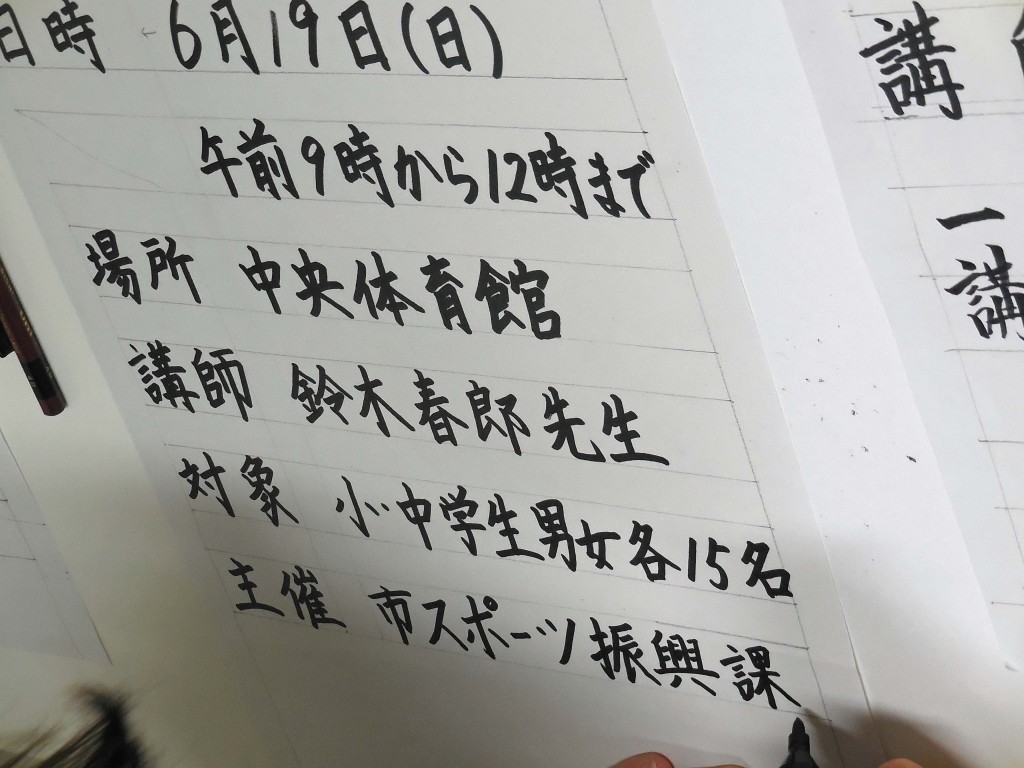 日時 6月19日(日)
午前9時から12時まで
場所 中央体育館
講師 鈴木春郎先生
対象 小・中学生男女各15名
主催 市スポーツ振興課
講
一
講